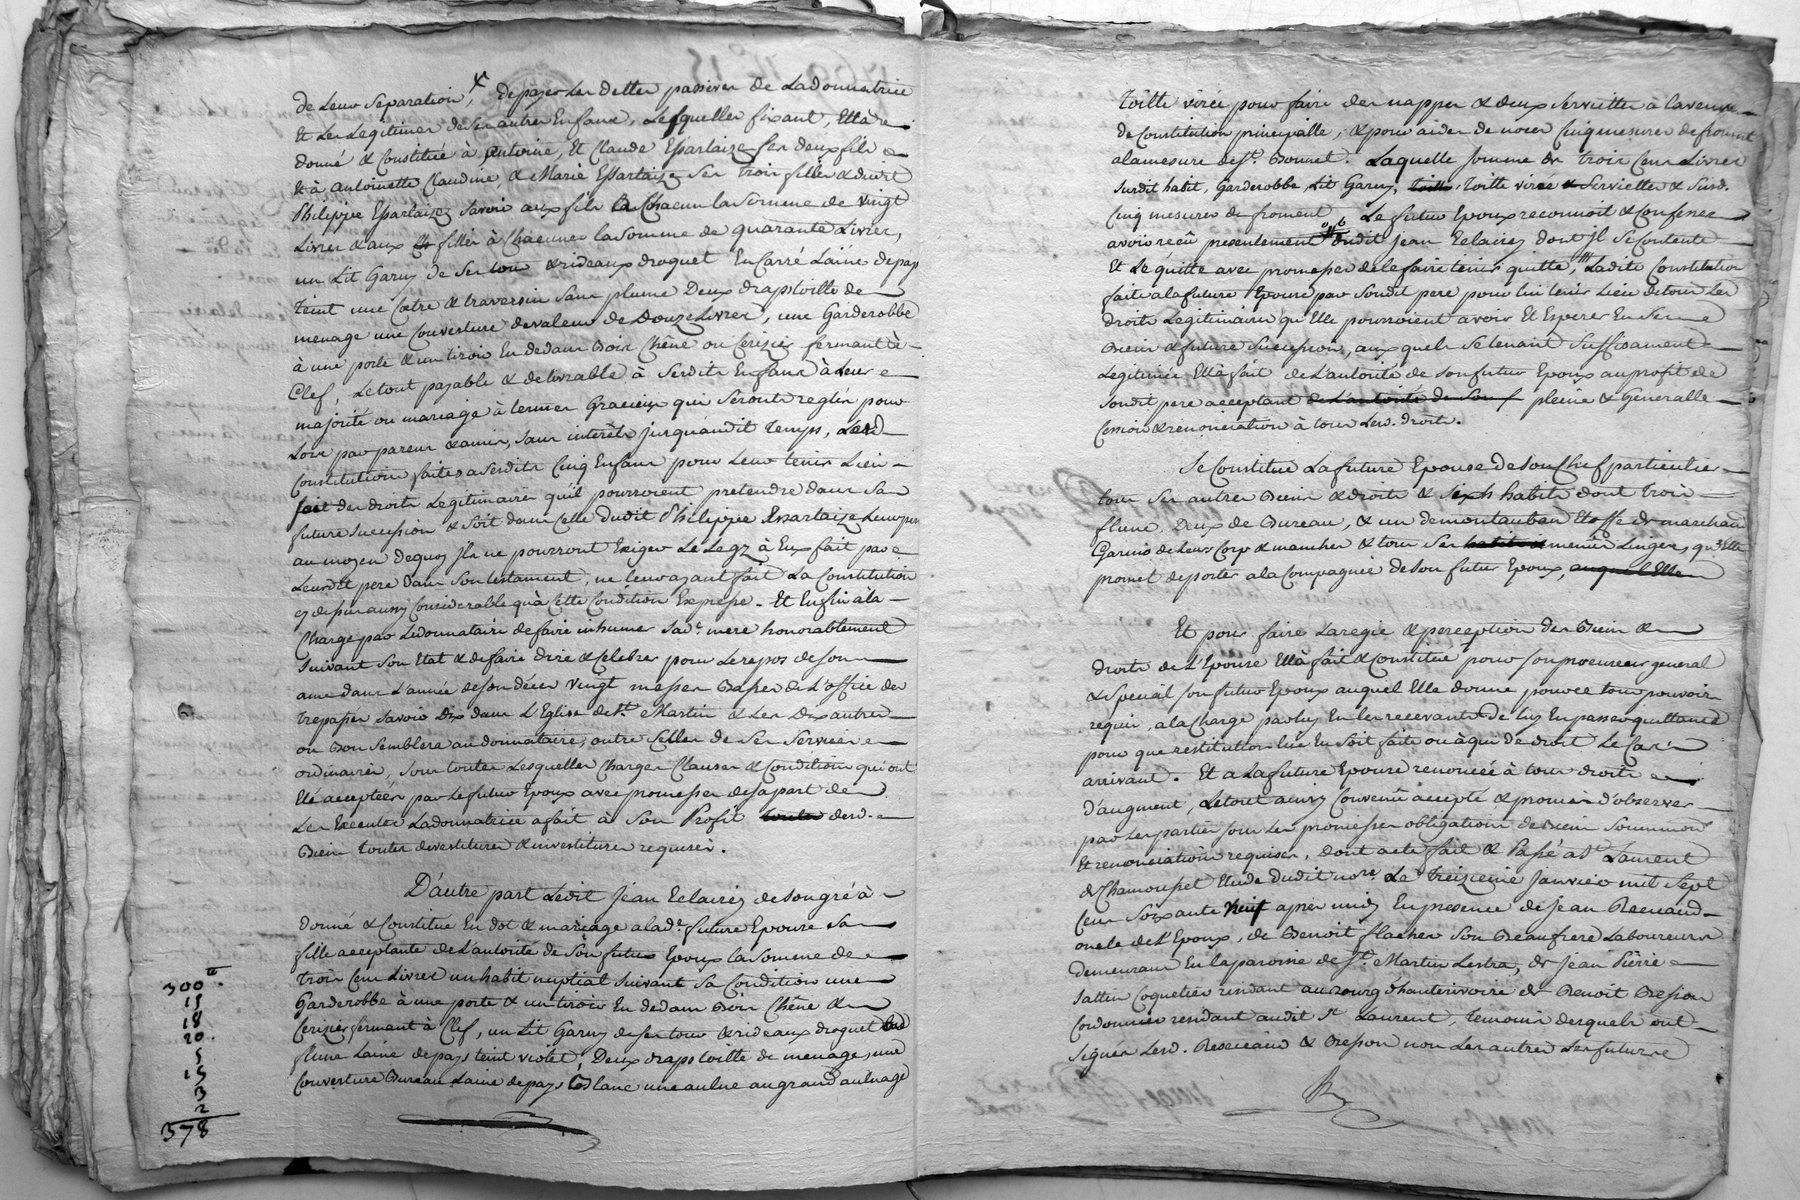 de Leur Separation, x de payer les dettes passives de Ladonnatrice
Et Les Legitimes de ses autres Enfans, Lesquelles fixant, Ella
donné & Constitué à Antoine, Et Claude Essartaize ses deux fils
& à Antoinette Claudine, & Marie Essartaize ses trois filles & dudit
Philippe Essartaize, Savoir aux fils à Chacun la Somme de Vingt
Livres & aux filles à Chacune la Somme de quarante Livres,
un Lit Garny de ses tour & rideaux droguet En Carré Laine de pays
teint une Coetre & traversin sans plume Deux draps toille de
menage une Couverture de valeur de Douze Livres, une Garderobbe
à une porte & un tiroir En dedans Bois Chêne ou Cerizier fermant à
Clef, Le tout payable & delivrable à Sesdits Enfans à Leur
majorité ou mariage à termes Gracieux qui Seront reglés pour
Lors par parens & amis, sans interêts jusquaudit temps, Lesd.
Constitutions faites a Sesdits Cinq Enfans pour Leur tenir Lieu
des droits Legitimaires qu'ils pourroient pretendre dans Sa
future Succession & Soit dans Celle dudit Philippe Essartaize Leur pere
au moyen dequoy ils ne pourront Exiger Le Legz à Eux fait par
Leurdit pere dans Son testament, ne leur ayant fait La Constitution
cy dessus aussy Considerable qu'à Cette Condition Expresse. Et Enfin à la
Charge par Ledonnataire de faire inhumer Sad. mere honorablement
Suivant Son Etat & de faire dire & Celebrer pour Le repos de son
ame dans L'année de son décès Vingt messes Basses de L'office des
trepassés Savoir Dix dans L'Eglise de St. Martin & Les Dix autres
ou Bon Semblera au donnataire, outre Celles de Ses Services
ordinaires, Sous toutes Lesquelles Charges Clauses & Conditions qui ont
Eté acceptées par Le futur Epoux avec promesses de sa part de
Les Executer Ladonnatrice a fait à Son Profit desd.
Biens toutes devestitures & investitures requises.
D'autre part Ledit Jean Eclairez de Son gré à
donné & Constitué En dot & mariage a lad. future Epouse Sa
fille acceptante de L'autorité de Son futur Epoux la Somme de
trois Cens Livres un habit nuptial Suivant Sa Condition une
Garderobbe à une porte & un tiroir En dedans Bois Chêne &
Cerizier fermant à Clef, un Lit Garny de ses tour & rideaux droguet
fluné Laine de pays teint violet, Deux draps toille de menage, une
Couverture Bureau Laine de pays blanc une aulne au grand aulnage
300 tt.
15
18
20.
5
15
3
2
378
toille virée pour faire des nappes & deux Serviettes à la venise
de Constitution principalle, & pour aider de noces Cinq mesures de froment
a la mesure de St. Bonnet. Laquelle Somme de trois Cens Livres
Surdit habit, Garderobbe, Lit Garny, toille, toille virée & Serviettes & Susd.
Cinq mesures de froment, Le futur Epoux reconnoit & Confesse
avoir reçû presentement dudit Jean Eclairez dont Jl Se Contente
Et Le quitte avec promesses de le faire tenir quitte, Ladite Constitution
faite a la future Epouse par Sondit pere pour lui tenir Lieu de tous Les
droits Legitimaires qu'Elle pourroient avoir Et Esperer En Ses
Biens & future Succession, aux quels Se tenant Suffisament
Legitimée Ellà fait de L'autorité de Son futur Epoux au profit de
Sondit pere acceptant de L'autorité de Son f pleine & Generalle
Cession & renonciation à tous Lesd. droits.
Se Constitue La future Epouse de Son Chef particulier
tous Ses autres Biens & droits & Six habits dont trois
fluné, Deux de Bureau, & un de montauban Etoffe de marchand
Garnis de Leurs Corps & manches & tous Ses menus Linges, qu'Elle
promet de porter a la Compagnie de Son futur Epoux, auquel Elle
Et pour faire La regie & perception des Biens &
droits de L'Epouse Ellà fait & Constitué pour Son procureur general
& Special Son futur Epoux auquel Elle donne pour ce tous pouvoirs
requis, a la Charge par luy En les recevants de luy En passer quittance
pour que restitution lui En Soit faite ou à qui de droit Le Cas
arrivant. Et a La future Epouse renoncée à tous droits
d'augment, Le tout ainsy Convenu accepté & promis d'observer
par Les parties Sous Les promesses obligations de Biens Soumissions
Et renonciations requises, dont acte fait & Passé a St. Laurent
de Chamousset Etude dudit no.re Le Treizieme Janvier mil Sept
Cens Soixante Neuf après midy En presence de Jean Resseaud
oncle de L'Epoux, de Benoit flacher Son Beaufrere Laboureurs
demeurans En la paroisse de St. Martin Lestra, de Jean Pierre
Sattin Coquetier resident au Bourg d'hauterivoire & Benoit Bession
Cordonnier resident audit St. Laurent, temoins desquels ont
Signés Lesd. Resseaud & Bession non Les autres Les future